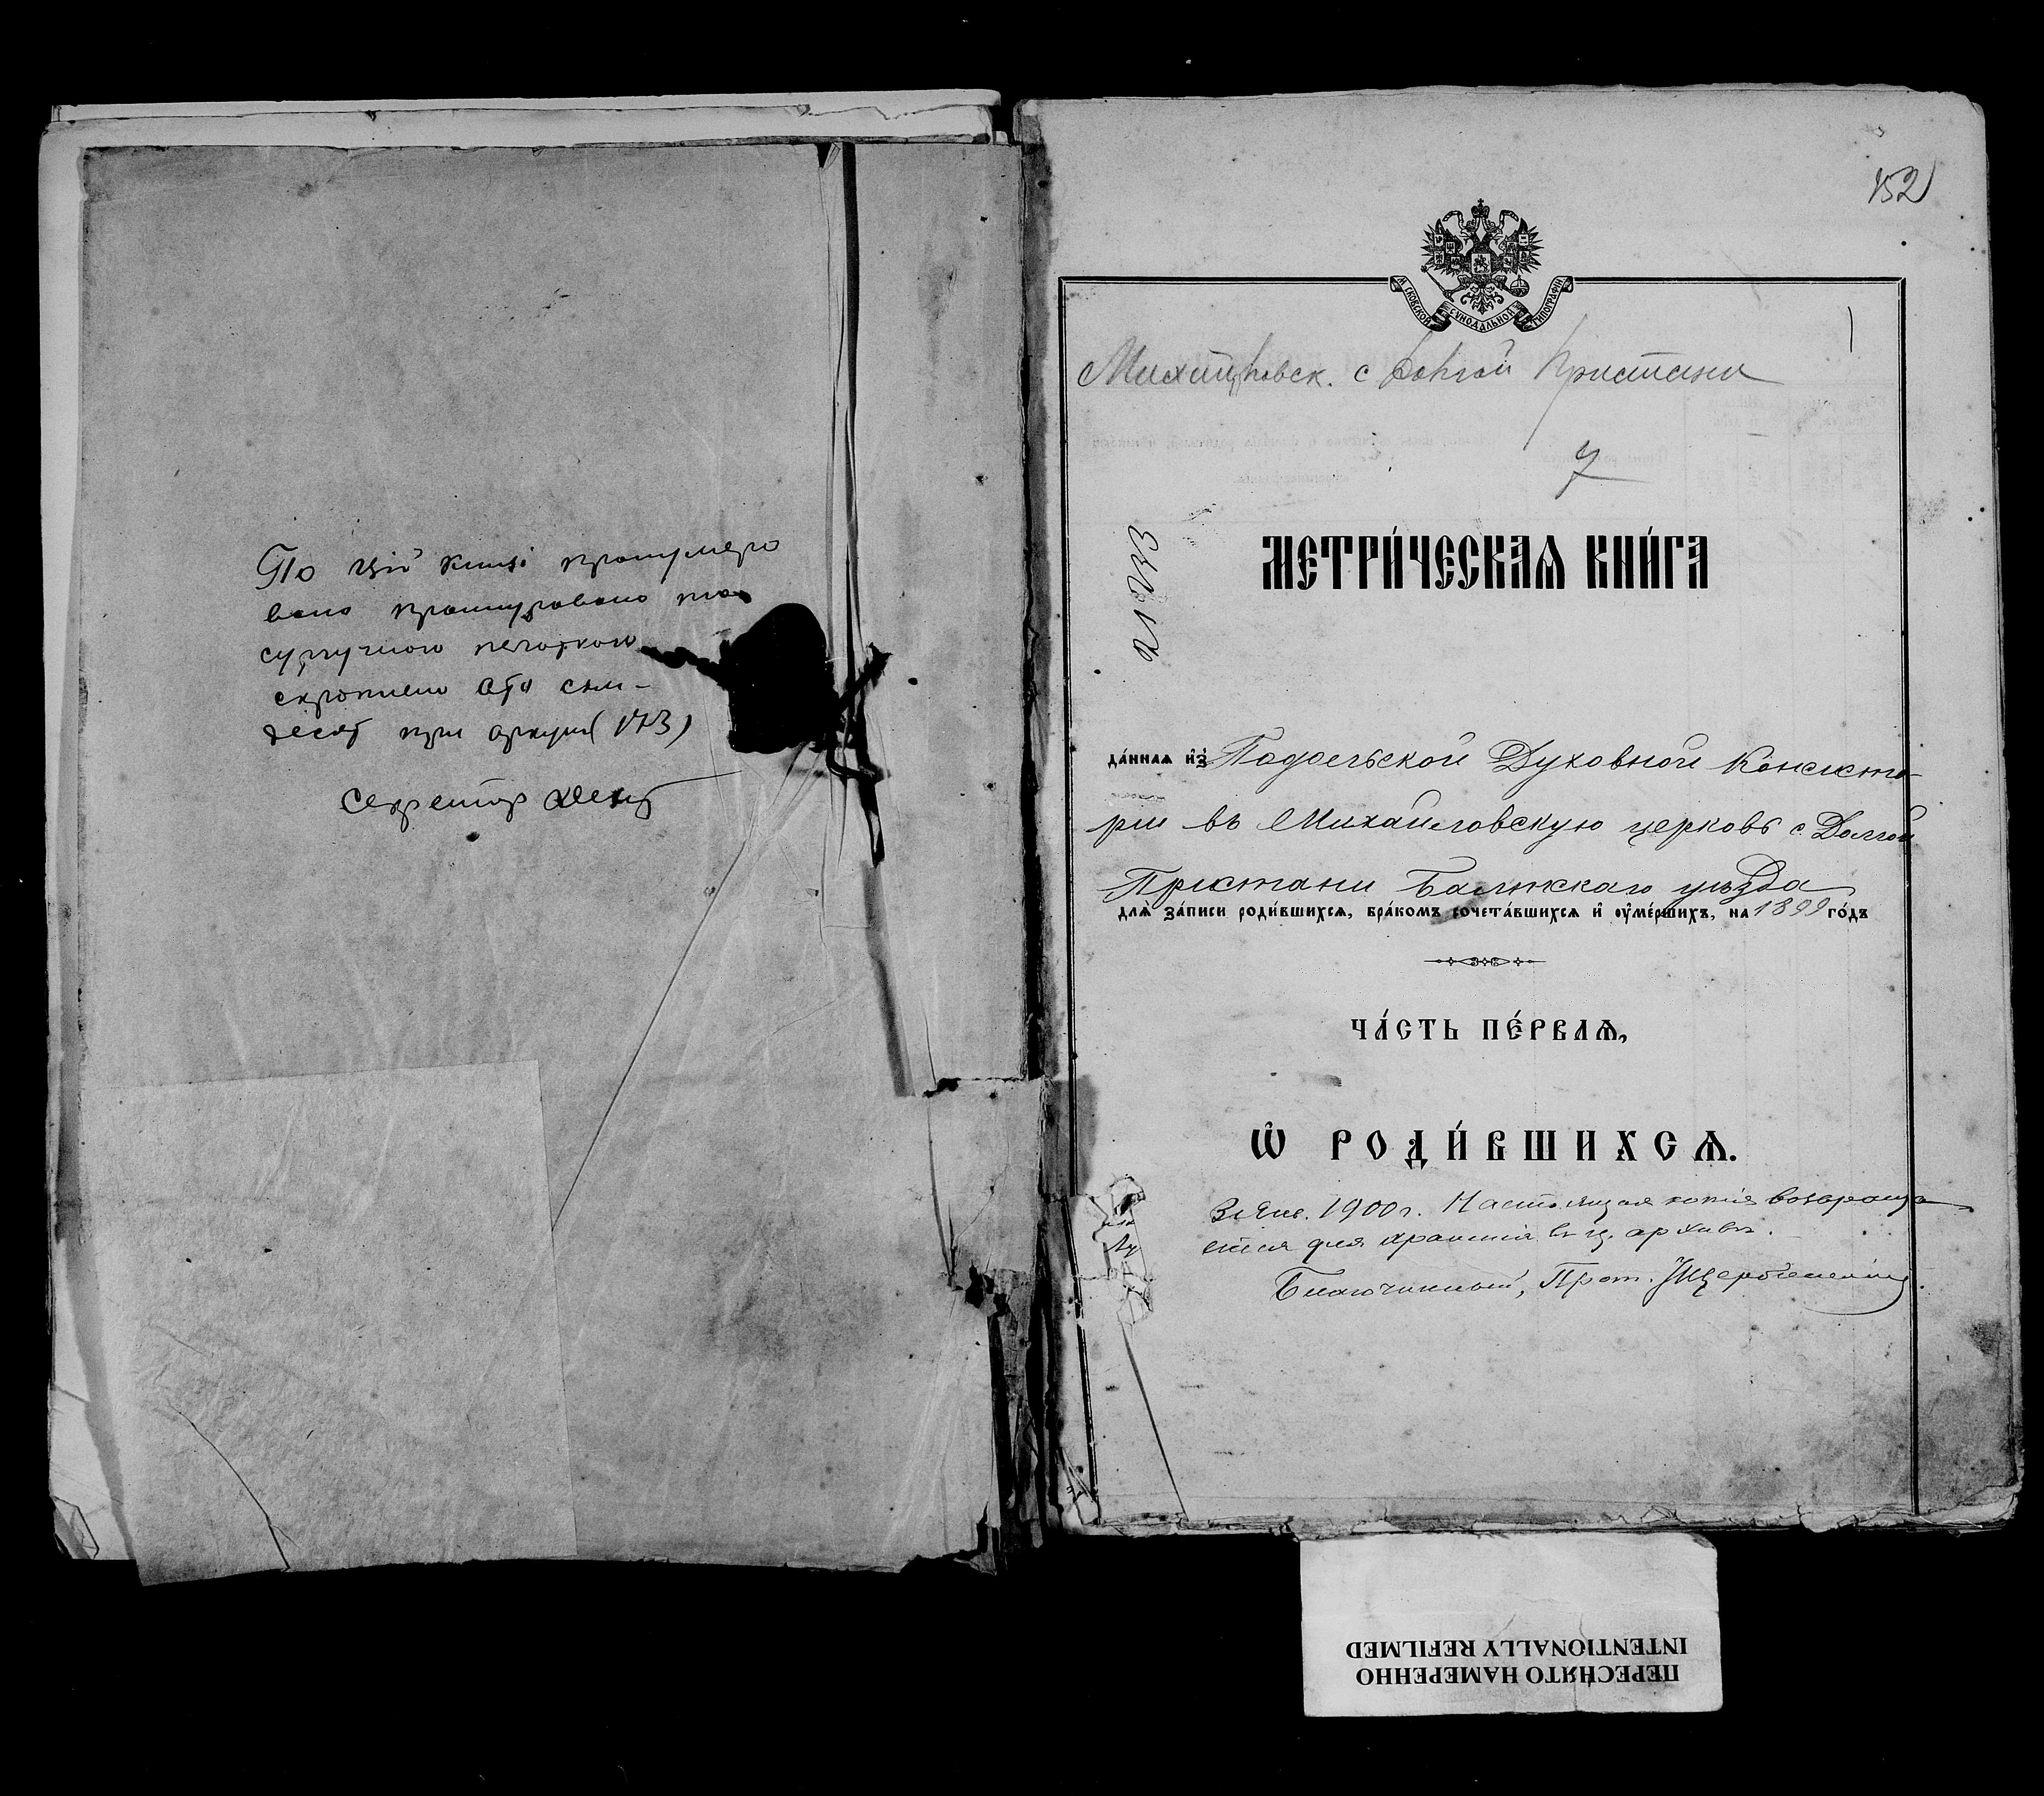 По цій книзі пронумеро
вано прошнуровано та
сургучною печаткою
скріплено сто сім-
десят три аркуші (173)
Секретар
152
МОСКОВСКОЙ СѴНОДАЛЬНОЙ ТИПОГРАФІИ
1
Михайловск. с Долгой Пристани
7
МЕТРИ́ЧЕСКАѦ КНИ́ГА
да́нная и҆з̾ Подольской Духовной Консисто-
рiи въ Михайловскую церковь с Долгой
Пристани Балтскаго уѣзда
для̀ за́писи роди́вшихся, бра́комъ сочета́вшихся и҆ ѹ҆ме́ршихъ, на 1899 го́дъ
ЧА́СТЬ ПЕ́РВАѦ,
Ѡ҆ РОДИ́ВШИХСѦ.
31 Янв. 1900 г. Настоящая копія возвраща
ется для храненія въ ц. архивѣ.
Благочинный, Прот.
ПЕРЕСНЯТО НАМЕРЕННО
INTENTIONALLY REFILMED